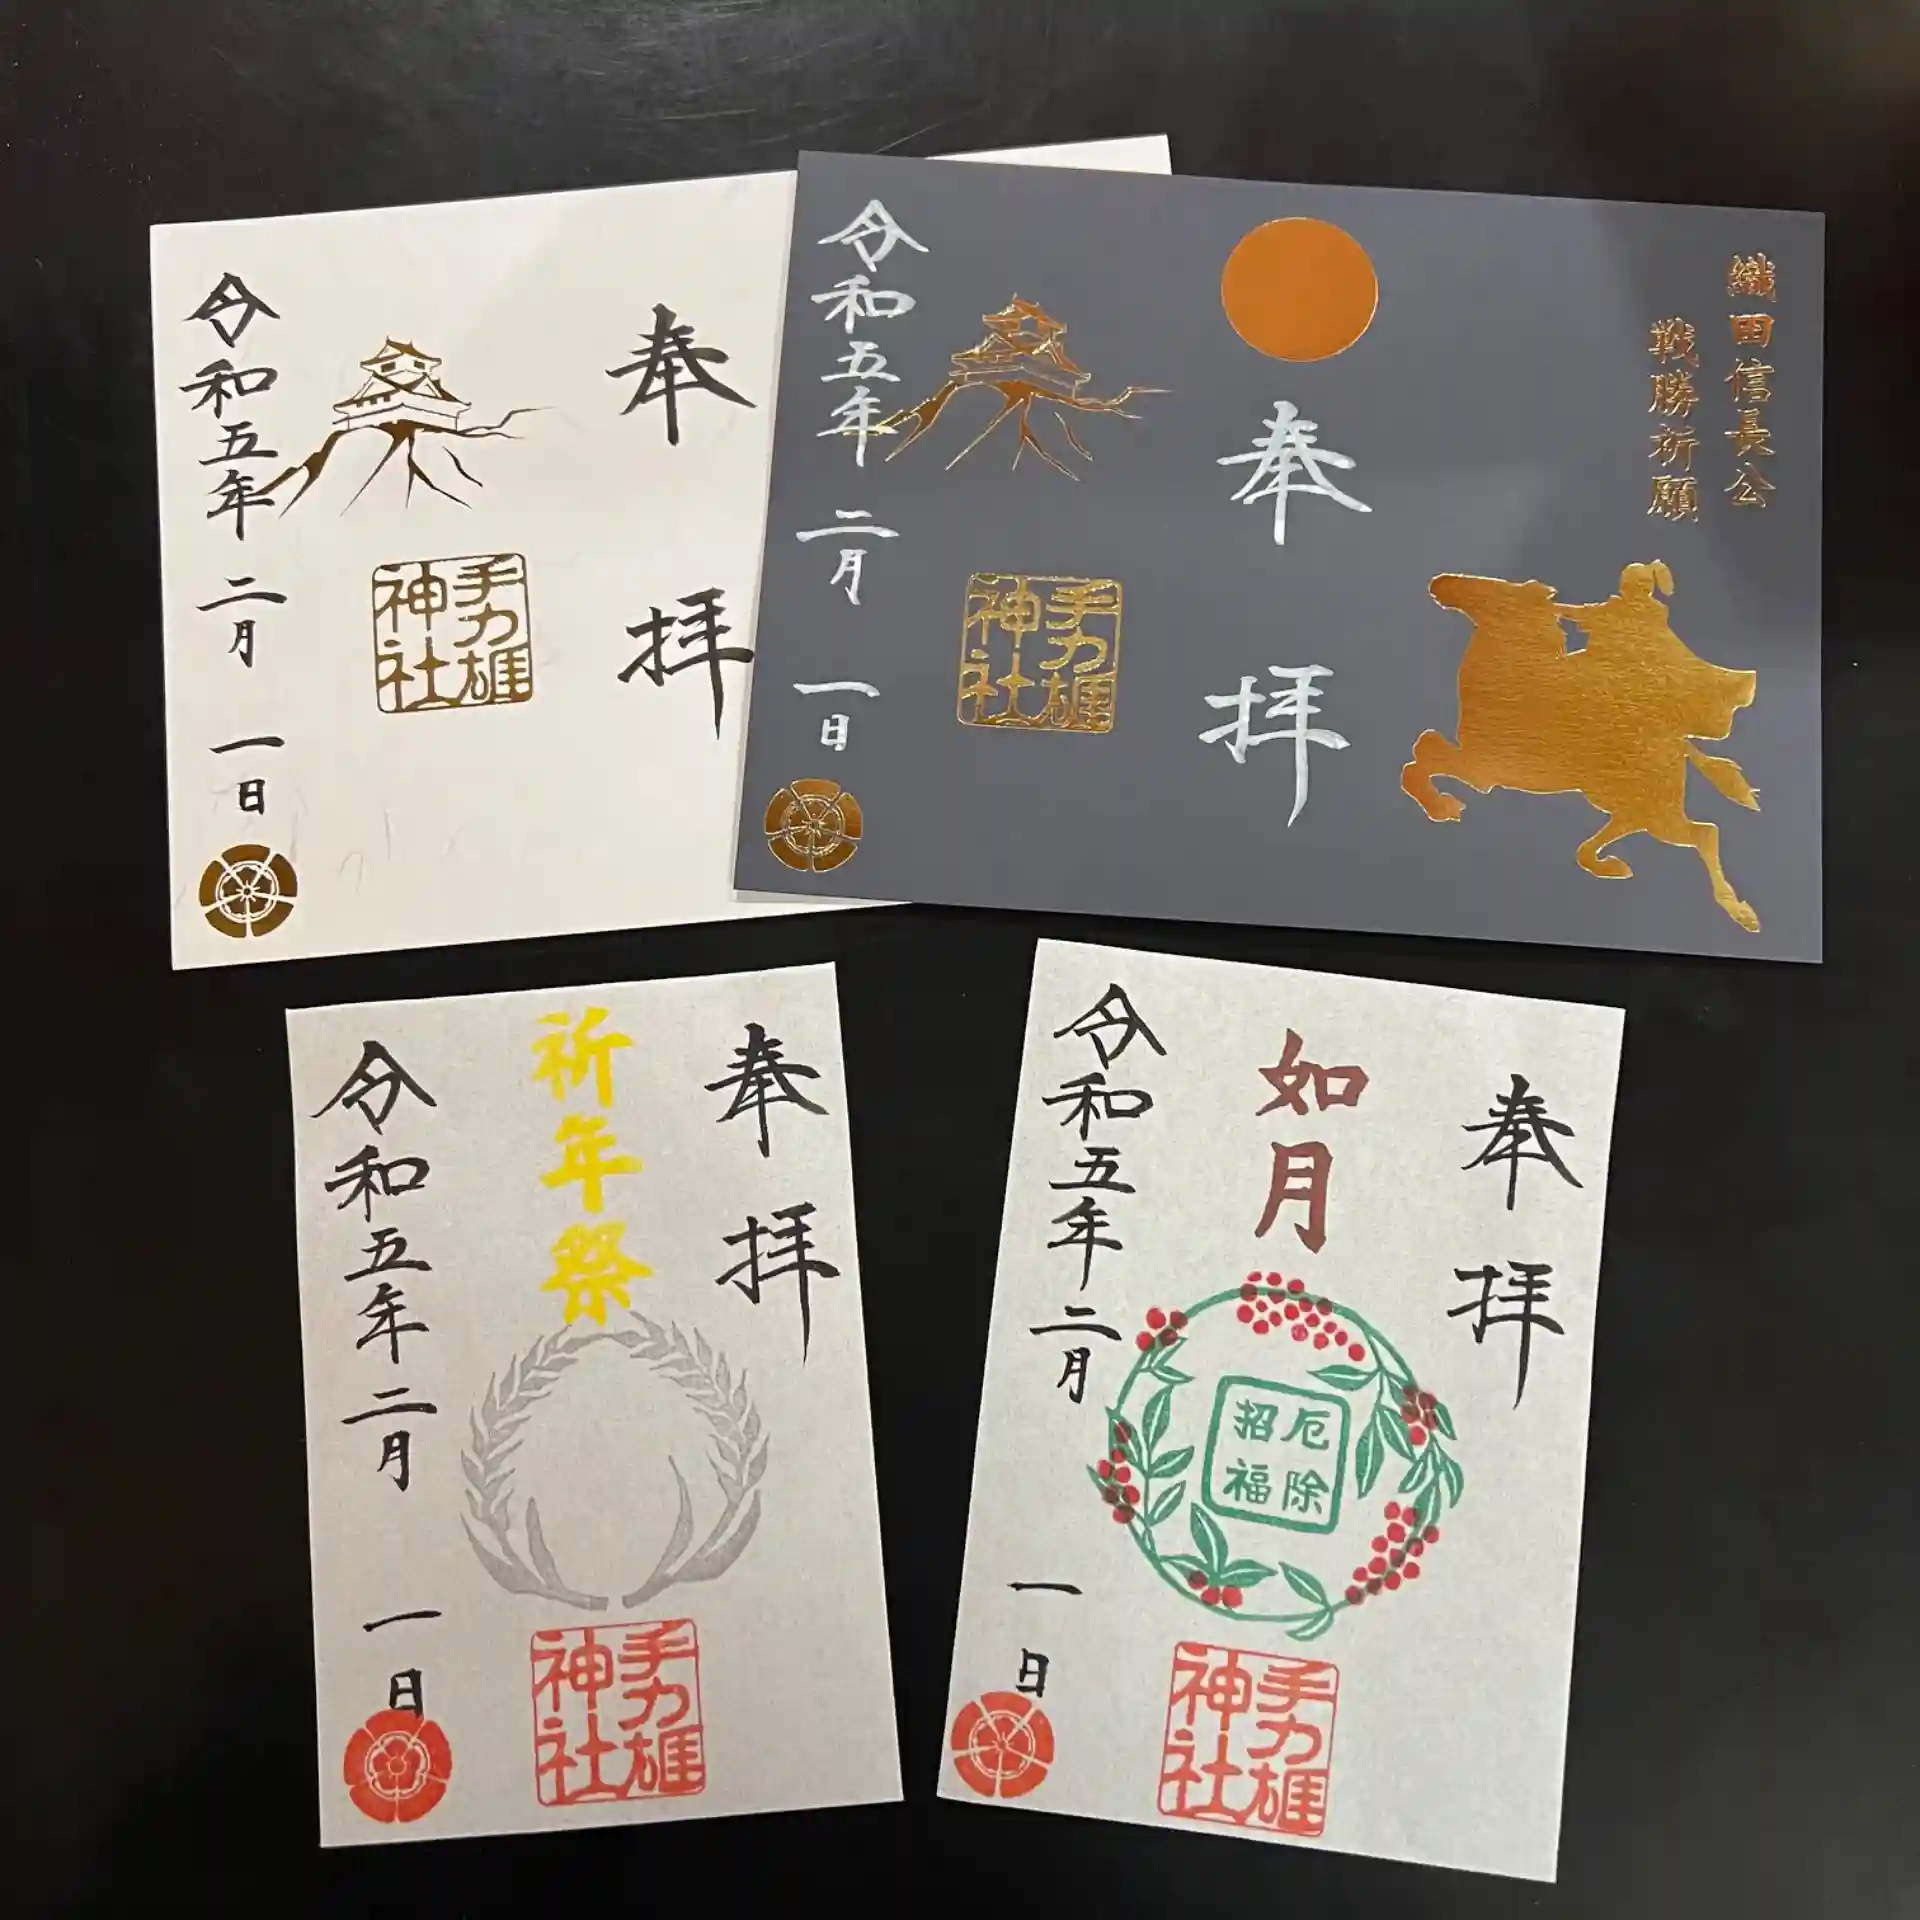 奉拝
手力雄
神社
令和五年二月一日
織田信長公
戦勝祈願
奉拝
手力雄
神社
令和五年二月一日
奉拝
祈年祭
手力雄
神社
令和五年二月一日
奉拝
如月
厄除
招福
手力雄
神社
令和五年二月一日